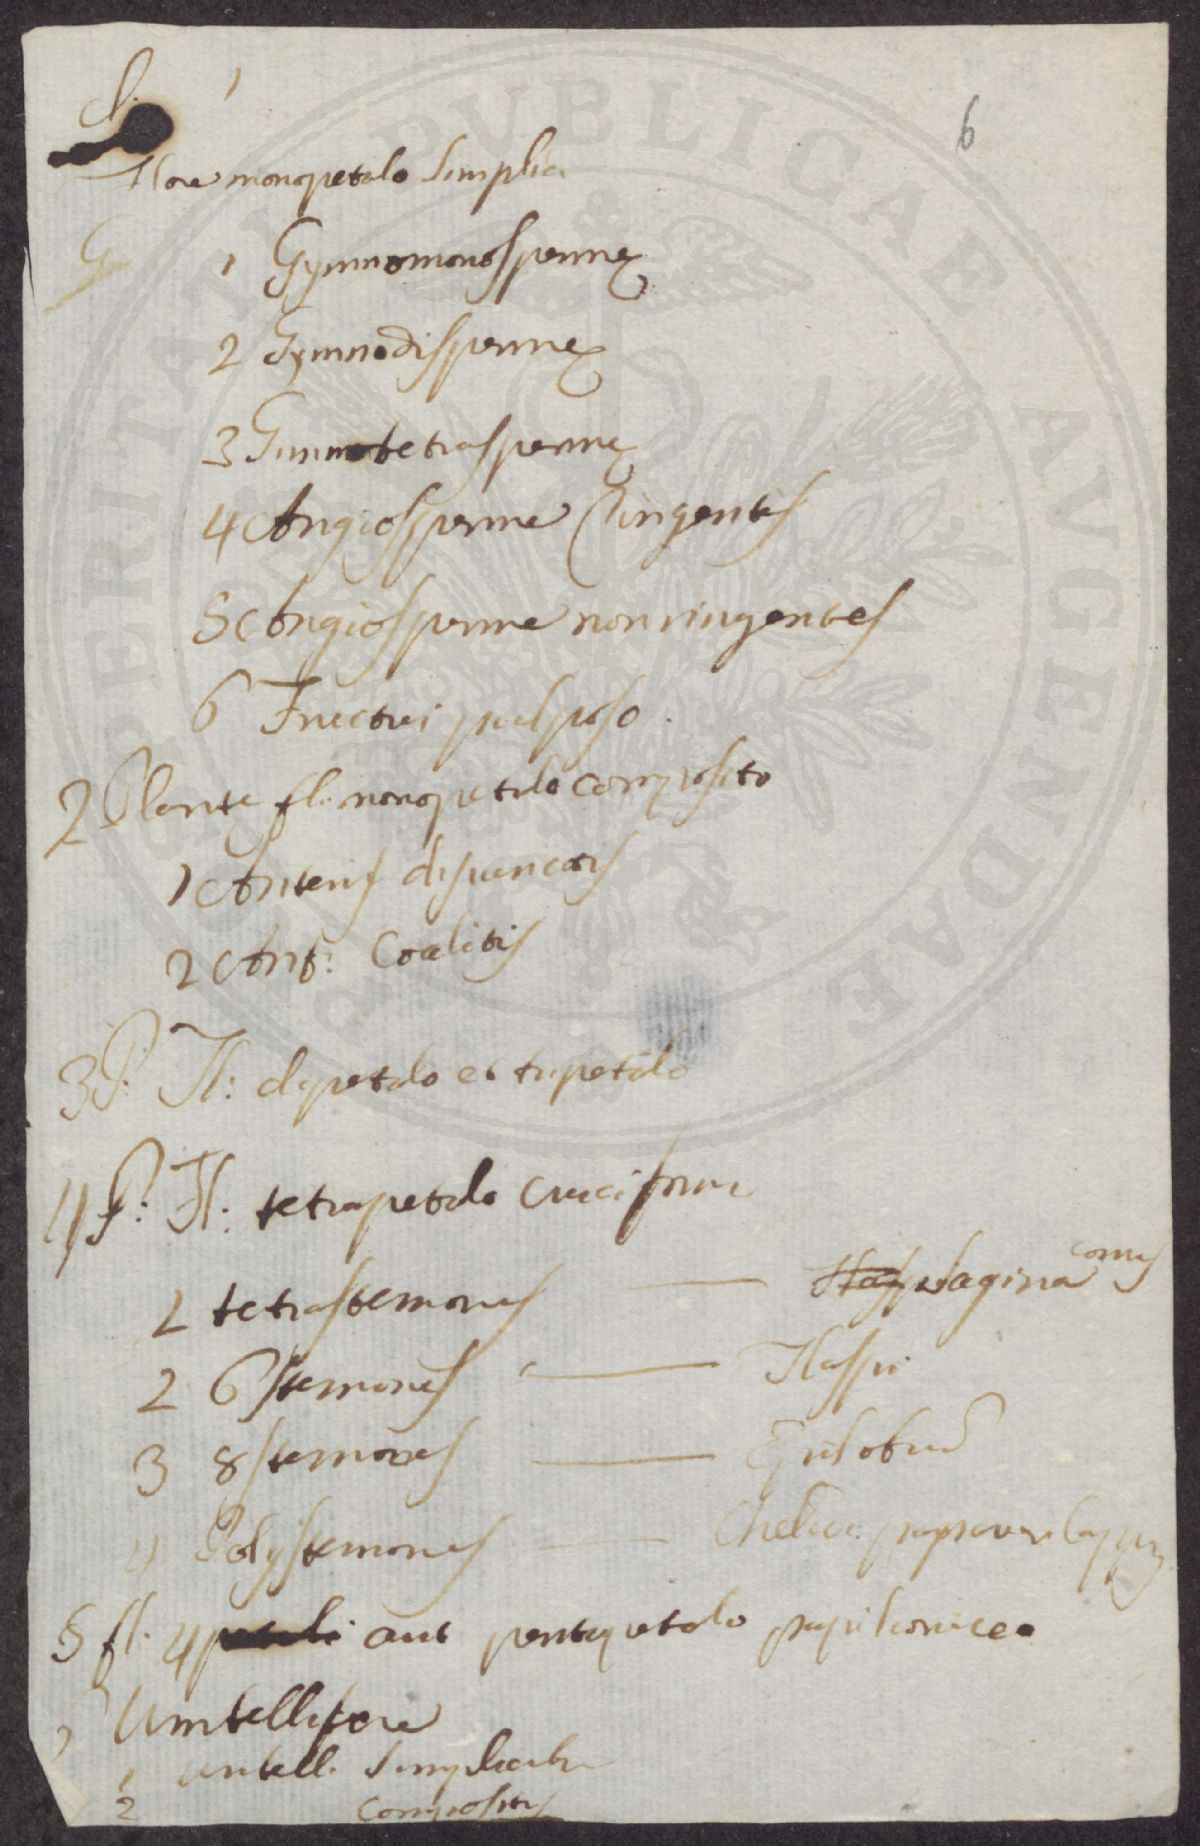 Cl. 1
6
Flore monopetalo simplici
G
1 Gymnomonospermę
2 Gymnodispermę
3 Gimnotetraspermę
4 Angiosperme ringentes
5 Angiosperme non ringentes
6 Fructu pulposo.
2 Plantę fl. monopetalo composito
1 Anteris disiunctis
2 Ant: Coalitis
3 P: Fl: dipetalo et tripetalo
4 P: Fl: tetrapetalo cruciformi
1 tetrastemones — Sagina
2 6stemones — Tlaspi
3 8stemones — Epilobiu
4 Polystemones — Chelid. papaver Cappar
5 fl. 4petali aut pentapetalo papilionaceo
Umbellifere
1 umbell. simplicibus
2 Compositis
PROSPERITATI PUBLICAE AVGENDAE